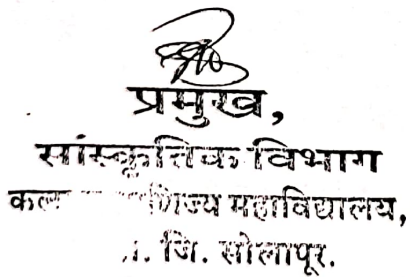 प्रमुख,
सांस्कृतिक विभाग
महाविद्यालय,
जि. सोलापूर.